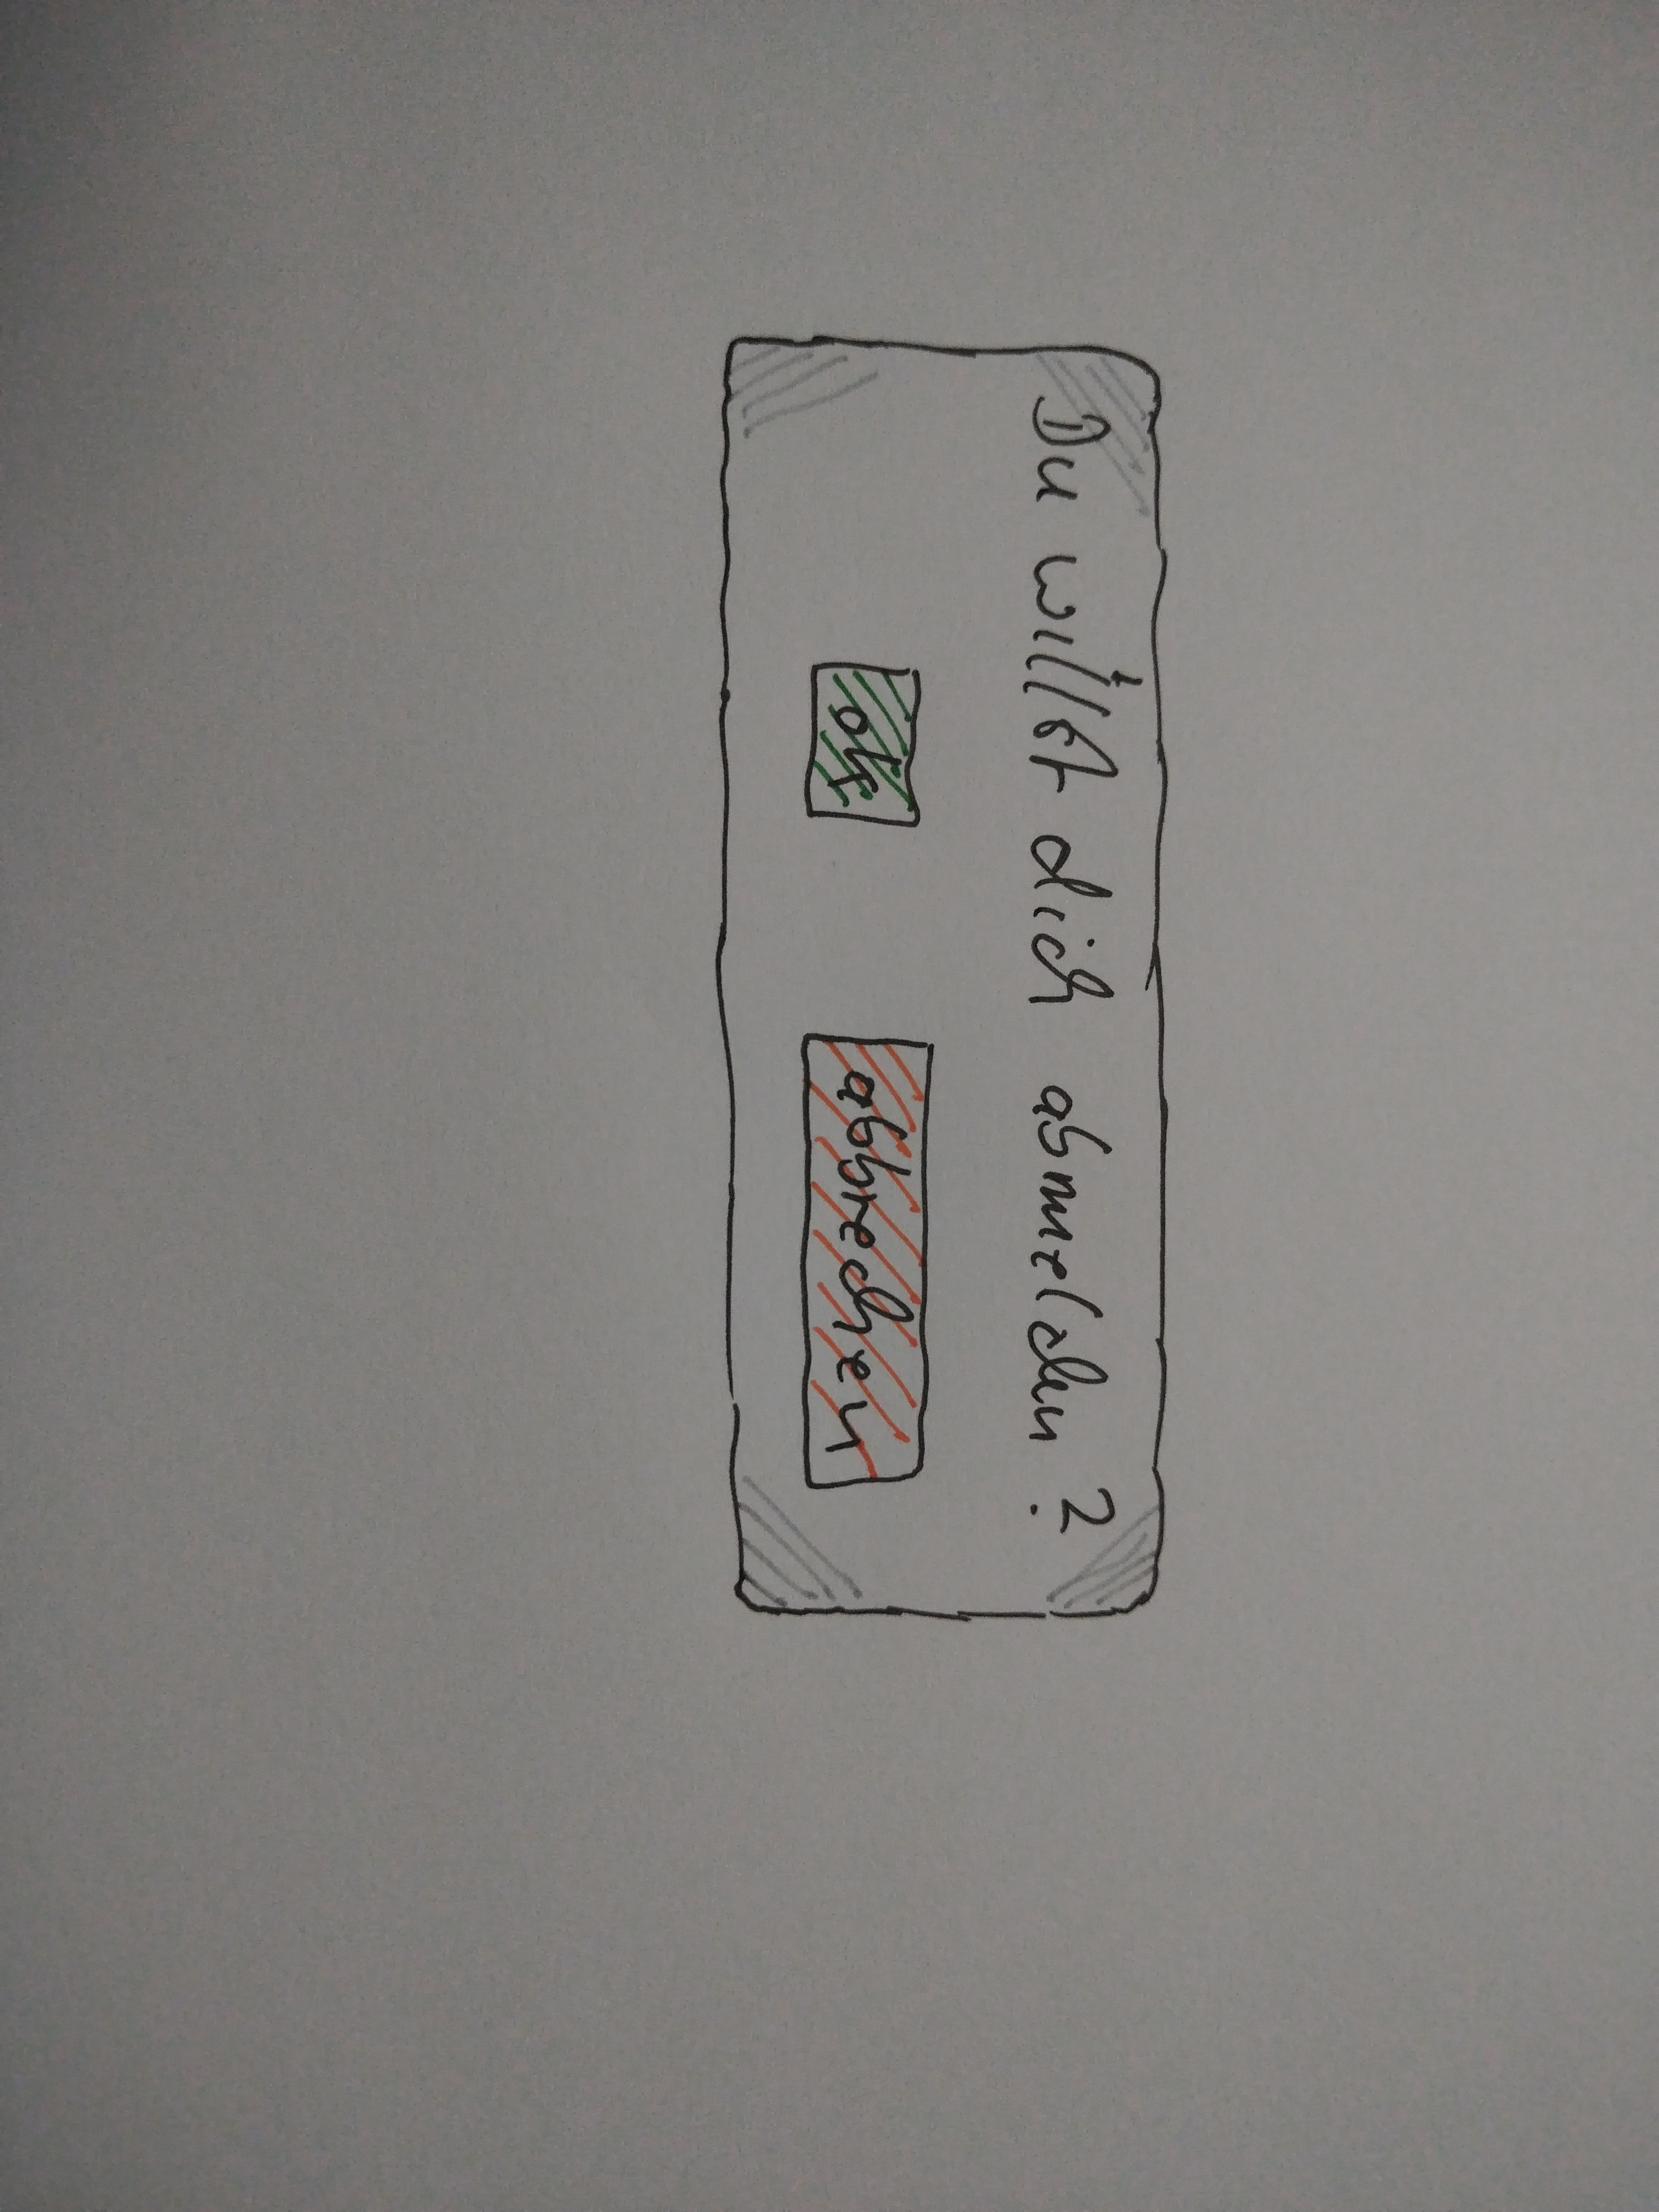 Du willst dich abmelden?
ok
abbrechen